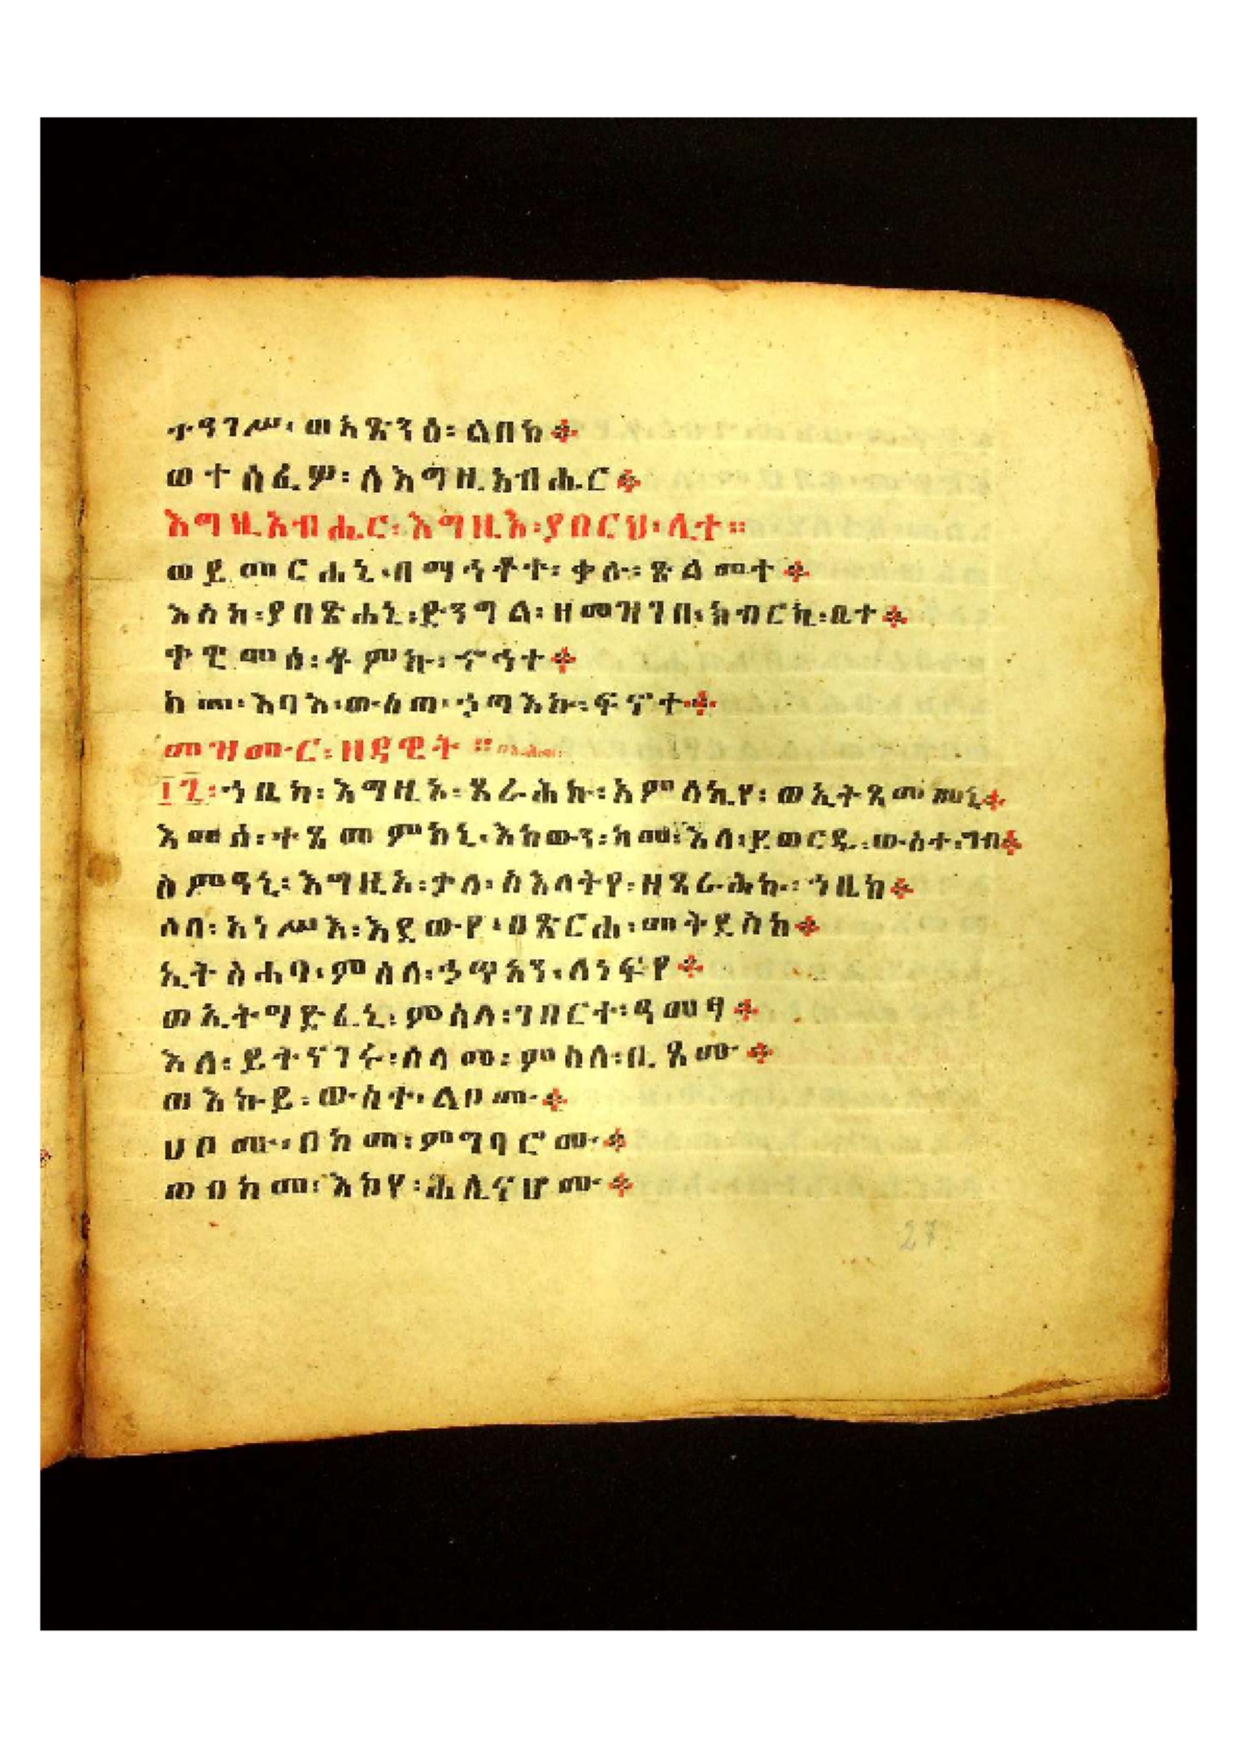 ተዓገሥ፡ ወአጽንዕ፡ ልበከ፨
ወተሰፈዎ፡ ለእግዚአብሔር፨
እግዚአብሔር፡ እግዚእ፡ ያበርህ፡ ሊተ።
ወይመርሐኒ፡ በማኅቶተ፡ ቃሉ፡ ጽልመተ፨
እስከ፡ ያበጽሐኒ፡ ድንግል፡ ዘመዝገበ፡ ክብርኪ፡ ቤተ፨
ቶምኩ፡ ኖኅተ፨
ከመ፡ እባእ፡ ውስጠ፡ ኃጣእኩ፡ ፍኖተ፨
መዝሙር፡ ዘዳዊት።
፳፯፡ ኀቤከ፡ እግዚኦ፡ ጸራሕኩ፡ አምላኪየ፡ ወኢትጸመመኒ፨
እመሰ፡ ተጸመምከኒ፡ እከውን፡ ከመ፡ እለ፡ ይወርዱ፡ ውስተ፡ ገብ፨
ስምዓኒ፡ እግዚኦ፡ ቃለ፡ ስእለትየ፡ ዘጸራሕኩ፡ ኀቤከ፨
ሶበ፡ አነሥእ፡ እደውየ፡ በጽርሐ፡ መትደስከ፨
ኢትስሐባ፡ ምስለ፡ ኃጥአን፡ ለነፍየ፨
ወኢትግድፈኒ፡ ምስለ፡ ገበርተ፡ ዓመፃ፨
እለ፡ ይትናገሩ፡ ሰላመ፡ ምስለ፡ ቢጾሙ፨
ወእኩይ፡ ውስተ፡ ልቦሙ፨
ሀቦሙ፡ በከመ፡ ምግባሮሙ፨
ወበከመ፡ እከየ፡ ሕሊናሆሙ፨
27